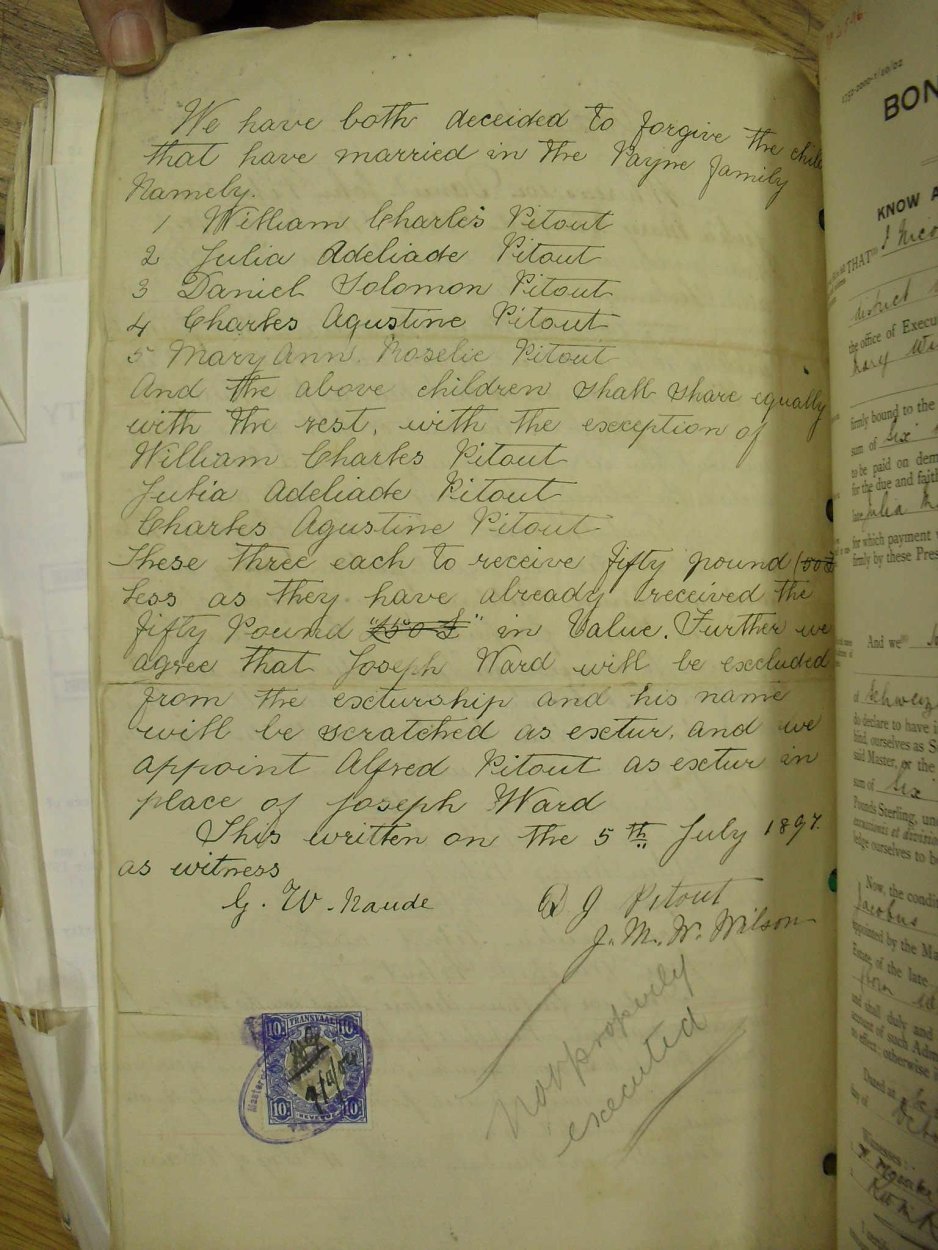 We have both deceided to forgive the chil
that have married in the Payne family
Namely.
1 William Charles Pitout
2 Julia Adeliade Pitout
3 Daniel Solomon Pitout
4 Charles Agustine Pitout
5 Mary Ann. Roselie Pitout
And the above children shall share equally
with the rest, with the exception of
William Charles Pitout
Julia Adeliade Pitout
Charles Agustine Pitout
These three each to receive fifty pound
Less as they have already received the
fifty Pound "£50 £" in Value. Further we
agree that Joseph Ward will be excluded
from the excturship and his name
will be scratched as exctur, and we
appoint Alfred Pitout as exctur in
place of Joseph Ward
This written on the 5th July 1897.
as witness
G. W. Naude
J Pitout
J. M. W. Wilson
Not properly
executed
TRANSVAAL
10/- 10/-
10/- 10/-
REVENUE
Master
BON
KNOW A
THAT I Nico
district
the office of Execu
Mary Wi
firmly bound to the
sum of Six
to be paid on dem
for the due and faith
late Julia M
for which payment
firmly by these Pres
And we
Schweiz
do declare to have
bind ourselves as S
said Master, or the
sum of Six
Pounds Sterling, un
ledge ourselves to be
Now, the condit
Jacobus
appointed by the Ma
Estate of the late
and shall duly and
account of such Adm
no effect: otherwise
Dated at
day of
Witnesses: